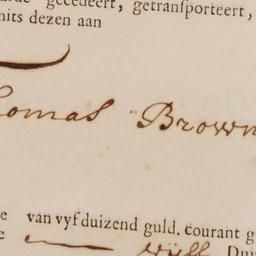 gecedeert, getransporteert,
mits dezen aan
Thomas Brown
van vyfduizend guld. courant g
wijff Dui